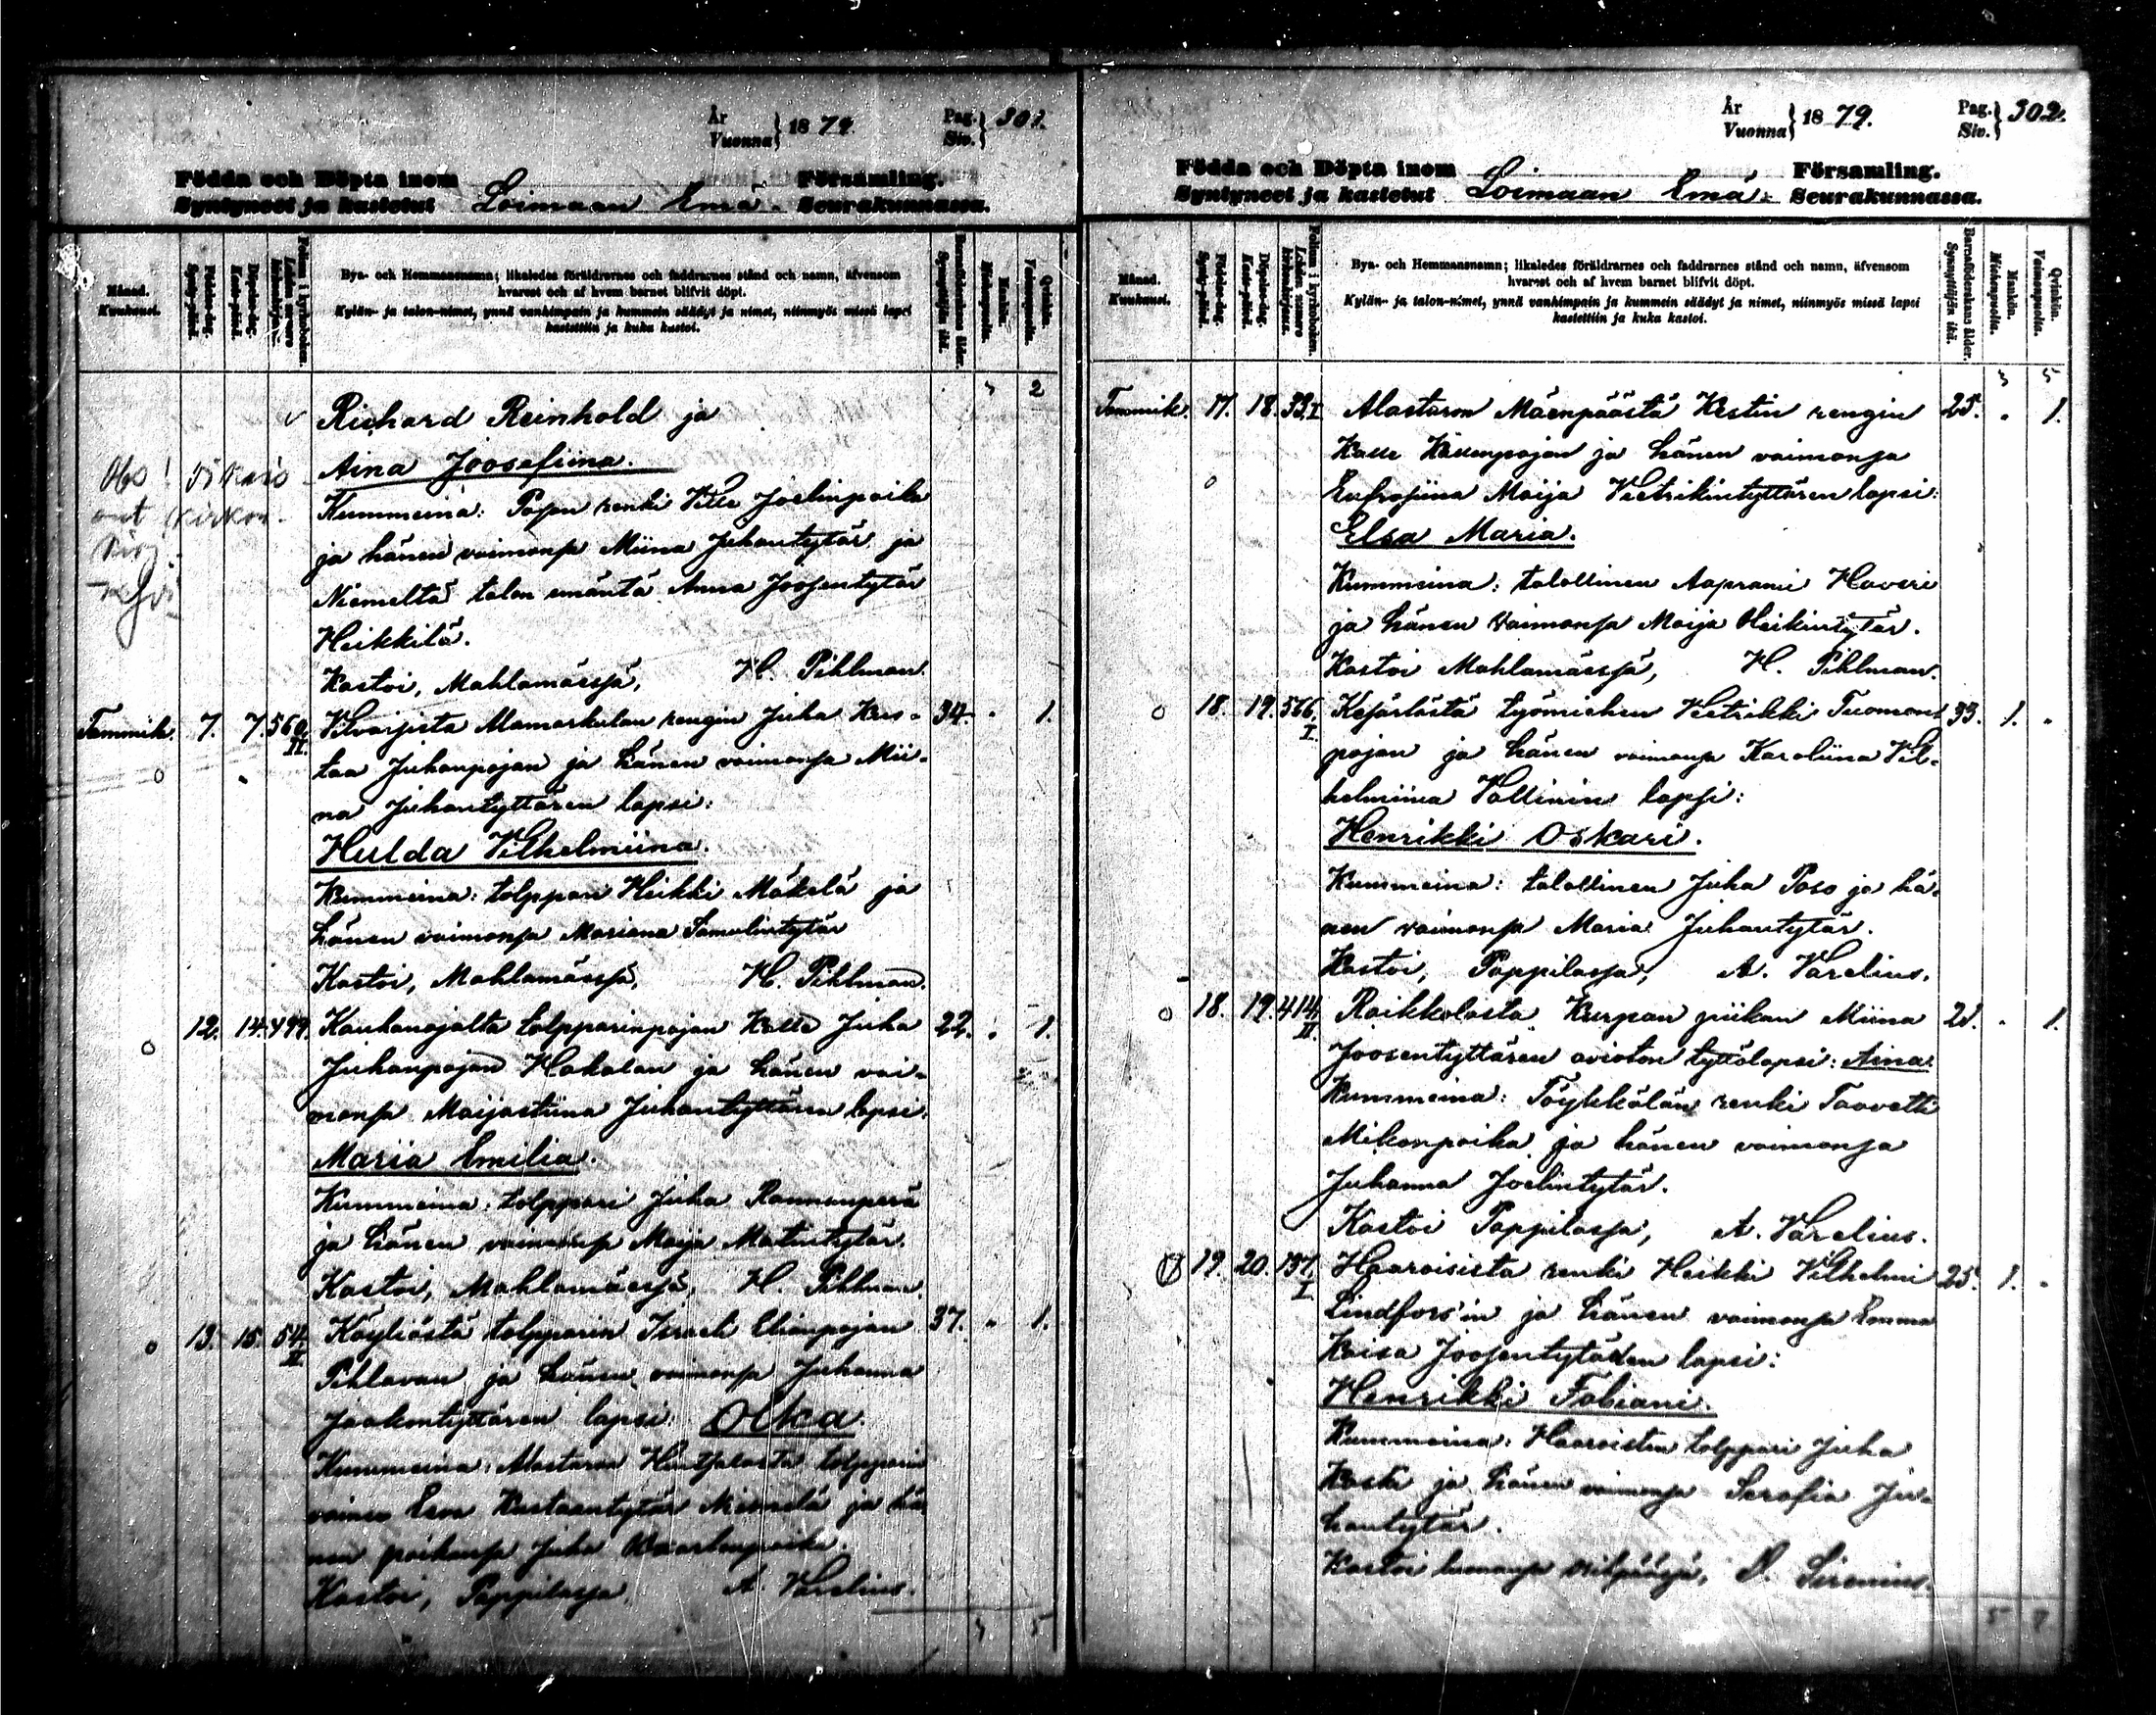 År
Vuonna } 1879.
Pag.
Siv. } 301.
Födda och Döpta inom Församling.
Syntyneet ja kastetut Loimaan Emä- Seurakunnassa.
Månad.
Kuukausi.
Födelse-dag.
Synty-päivä.
Döpelse-dag.
Kaste-päivä.
Folium i kyrkoboken.
Bya- och Hemmansnamn; likaledes föräldrarnes och faddrarnes stånd och namn, äfvensom
hvarest och af hvem barnet blifvit döpt.
Kylän- ja talon-nimet, ynnä vanhimpain ja kummein säädyt ja nimet, niinmyös missä lapsi
kastettiin ja kuka kastoi.
Barnaföderskans ålder.
Synnyttäjän ikä.
Mankön.
Miehenpuolta.
Qvinkön.
Vaimonpuolta.
2
Richard Reinhold ja
Aina Joosefiina.
Kummeina: renki Ville Joelinpoika
ja hänen vaimonsa Miina Juhantytär ja
Niemeltä talon emäntä Anna Joosentytär
Heikkilä.
Kastoi, Mahlamäessä, H. Pihlman.
Tammik. 7. 7. 560 II. Vilvarjista Mamarkulan rengin Juha Kus- 34. " 1.
taa Juhanpojan ja hänen vaimonsa Mii-
na Juhantyttären lapsi:
Hulda Vilhelmiina.
Kummeina: tolppari Heikki Mäkelä ja
hänen vaimonsa Mariana Samulintytär
Kastoi, Mahlamäessä, H. Pihlman.
12. 14. 499. Kauhanojalta tolpparinpojan Kalle Juha 22. " 1.
Juhanpojan Hakalan ja hänen vai-
monsa Maijastiina Juhantyttären lapsi:
Maria Emilia.
Kummeina: tolppari Juha Rannanperä
ja hänen vaimonsa Maija Matintytär.
Kastoi, Mahlamäessä, H. Pihlman.
13. 15. 54. II Köyliöstä tolpparin Israeli Elianpojan 37. " 1.
Pihlavan ja hänen vaimonsa Juhanna
Jaakontyttären lapsi: Olka.
Kummeina: Alastaron tolpparin
vaimo Eeva Kustaantytär Niemelä ja hä-
nen poikansa Juha
Kastoi, Pappilassa, A. Varelius.
5
År
Vuonna } 1879.
Pag.
Siv. } 302.
Födda och Döpta inom Församling.
Syntyneet ja kastetut Loimaan Emä- Seurakunnassa.
Månad.
Kuukausi.
Födelse-dag.
Synty-päivä.
Döpelse-dag.
Kaste-päivä.
Folium i kyrkoboken.
Bya- och Hemmansnamn; likaledes föräldrarnes och faddrarnes stånd och namn, äfvensom
hvarest och af hvem barnet blifvit döpt.
Kylän- ja talon-nimet, ynnä vanhimpain ja kummein säädyt ja nimet, niinmyös missä lapsi
kastettiin ja kuka kastoi.
Barnaföderskans ålder.
Synnyttäjän ikä.
Mankön.
Miehenpuolta.
Qvinkön.
Vaimonpuolta.
3 5
Tammik. 17. 18. 33. I Alastaron Mäenpäästä Kestin rengin 25. " 1.
Kalle Kallenpojan ja hänen vaimonsa
Eufrosiina Maija Veetrikintyttären lapsi:
Elsa Maria.
Kummeina: talollinen Aaprami Haveri
ja hänen vaimonsa Maija Heikintytär.
Kastoi Mahlamäessä, H. Pihlman.
18. 19. 566. I. Kesärlästä työmiehen Veetrikki Tuomon- 33. 1. "
pojan ja hänen vaimonsa Karoliina Vil-
helmiina Vallinin lapsi:
Henrikki Oskari.
Kummeina: talollinen Juha Poso ja hä-
nen vaimonsa Maria Juhantytär.
Kastoi, Pappilassa, A. Varelius.
18. 19. 414. II. Raikkolasta Kurpan piikan Miina 21. " 1.
Joosentyttären avioton tyttölapsi: Aina.
Kummeina: Töykkälän renki Taavetti
Mikonpoika ja hänen vaimonsa
Juhanna Joelintytär.
Kastoi Pappilassa, A. Varelius.
19. 20. 137. I. Haaroisista renki Heikki Vilhelmi 25. 1. "
Lindfors'in ja hänen vaimonsa Emma
Kaisa Joosentytären lapsi:
Henrikki Fabiani.
Kummeina: Haaroisten tolppari Juha
Koski ja hänen vaimonsa Serafia Ju-
hantytär.
Kastoi D. Sirenius.
5 7